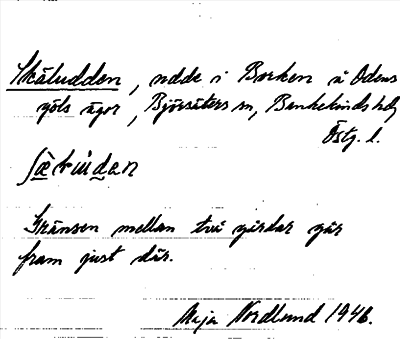 Skäludden, udde i Borken å Odens
göls ägor, Björsäters sn, Bankekinds hd,
Östg. l.
Gränsen mellan två gårdar går
fram just där.
Maja Nordlund 1946.